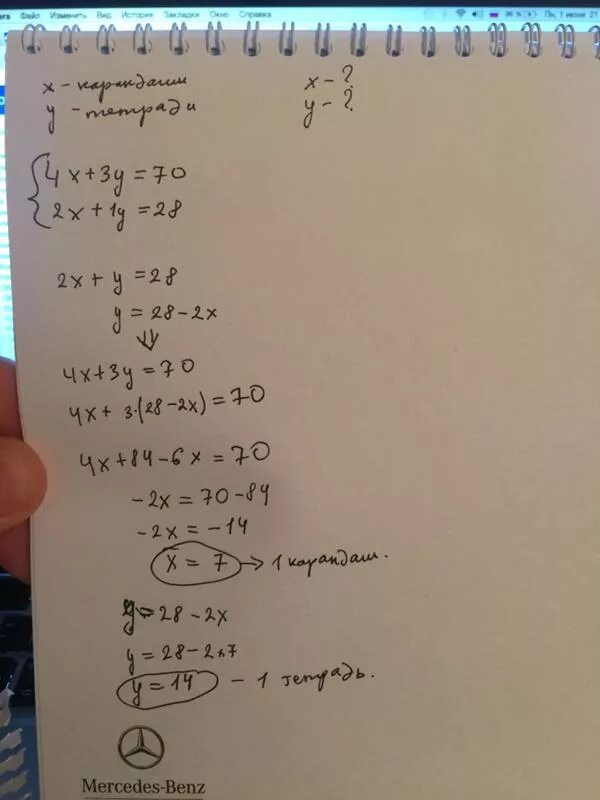 Файл Изменить Вид История Закладки Окно Справка
x - карандаши x - ?
y - тетради y - ?
4x + 3y = 70
2x + 1y = 28
2x + y = 28
y = 28 - 2x
⇓
4x + 3y = 70
4x + 3·(28 - 2x) = 70
4x + 84 - 6x = 70
-2x = 70 - 84
-2x = -14
x = 7 → 1 карандаш.
y = 28 - 2x
y = 28 - 2×7
y = 14 - 1 тетрадь.
Mercedes-Benz